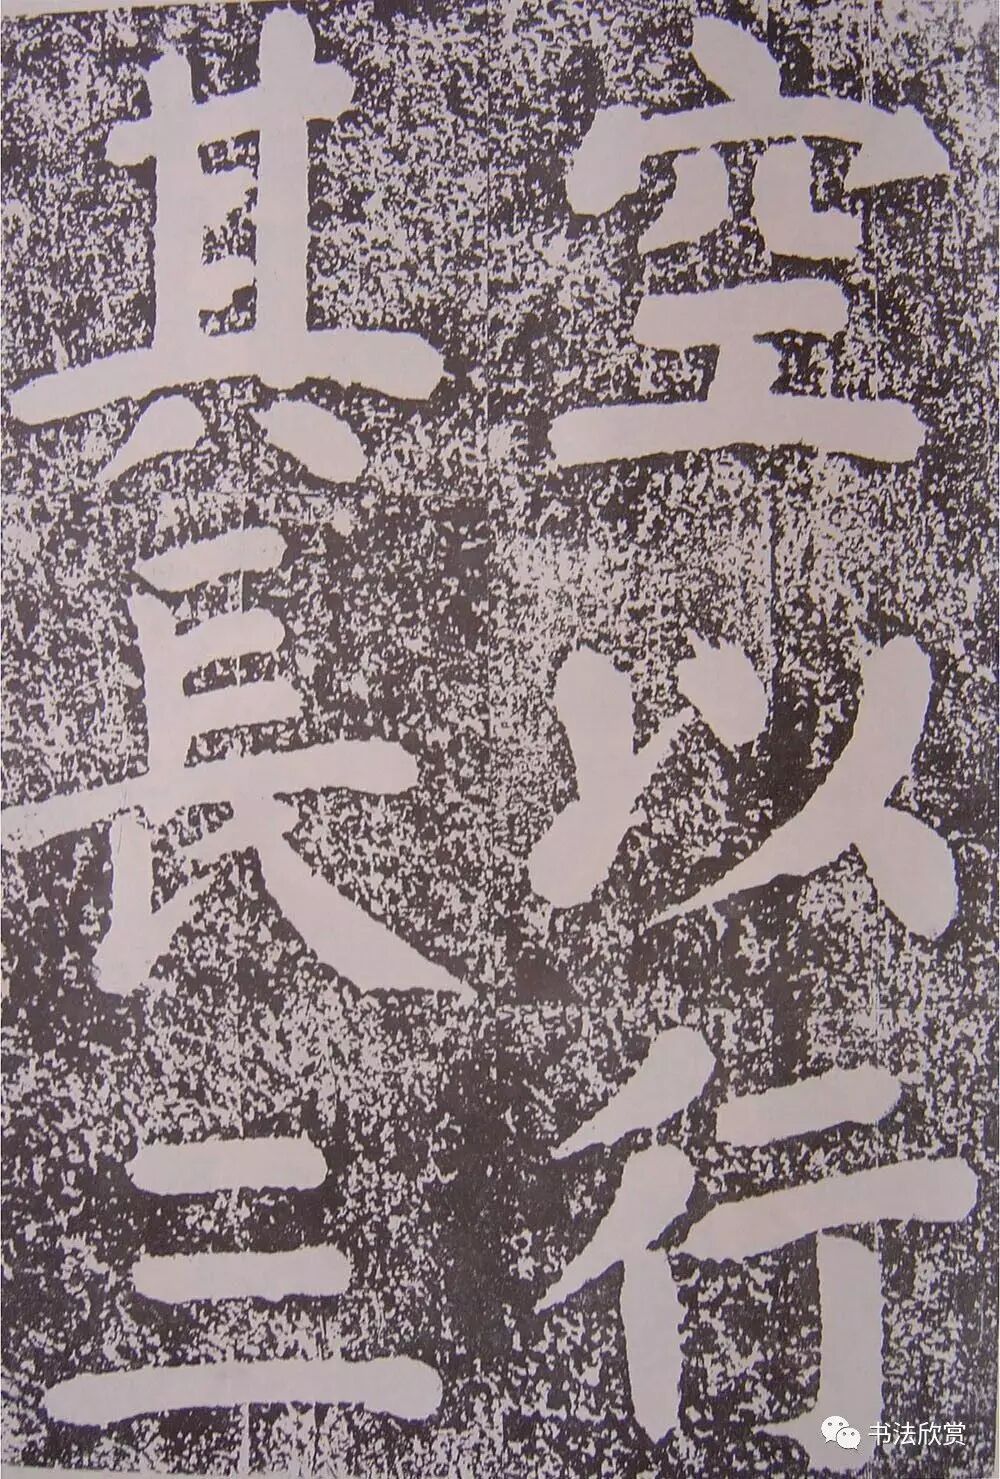 空以行
其長三
书法欣赏